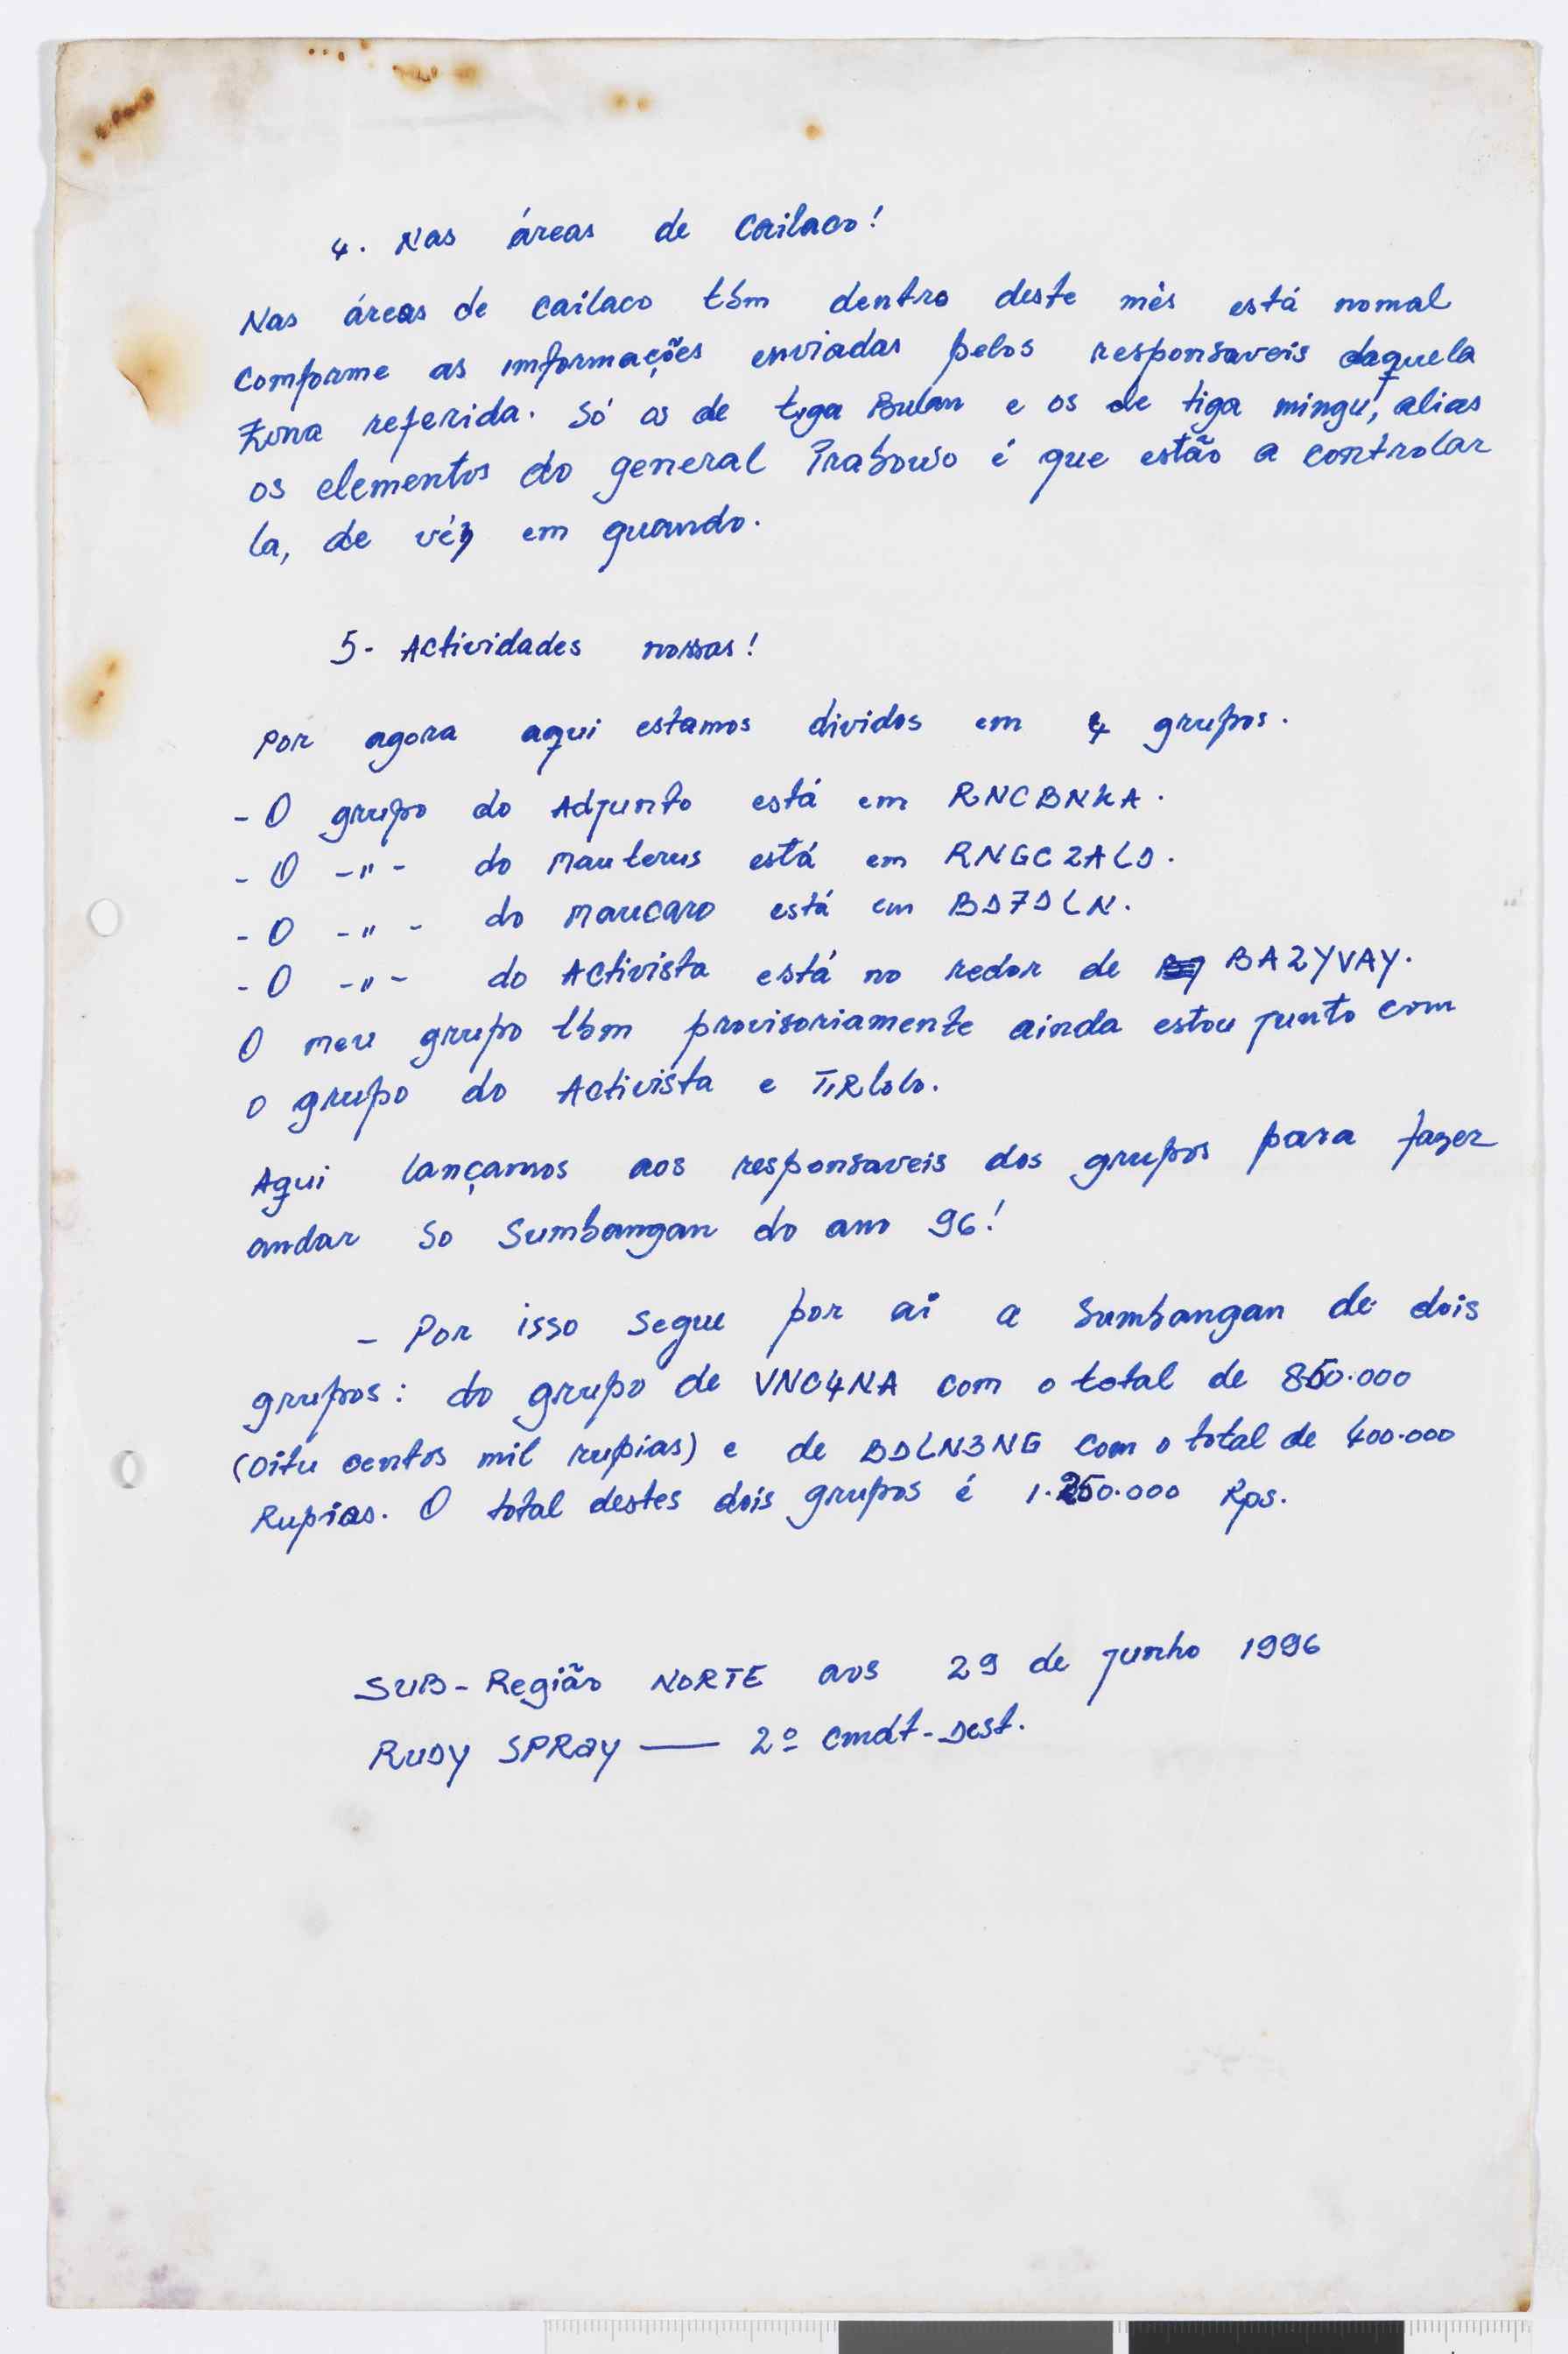 4. Nas áreas de Cailaco!
Nas áreas de Cailaco tbm dentro deste mês está nomal
Comforme as imformações enviadas pelos responsaveis daquela
Zona referida. Só os de tiga Bulan e os de tiga mingu, alias
os elementos do general Prabowo é que estão a controlar
la, de véz em quando.
5- Actividades nossas!
Por agora aqui estamos divididos em 4 grupos.
- O grupo do Adjunto está em RNCBNKA.
- O -"- do Mauterus está em RNGC2ALD.
- O -"- do Maucaro está em BD7DLN.
- O -"- do Activista está no redor de BA2YVAY.
O meu grupo tbm provisoriamente ainda estou junto com
o grupo do Activista e TIRLolo.
Aqui lançamos aos responsaveis dos grupos para fazer
andar so Sumbangan do ano 96!
- Por isso segue por ai a Sumbangan de dois
grupos: do grupo de VNC4NA com o total de 850.000
(Oitu centos mil rupias) e de BDLN3NG com o total de 400.000
Rupias. O total destes dois grupos é 1.250.000 Rps.
SUB-Região NORTE aos 29 de junho 1996
RUDY SPRay — 2º Cmdt-Dest.